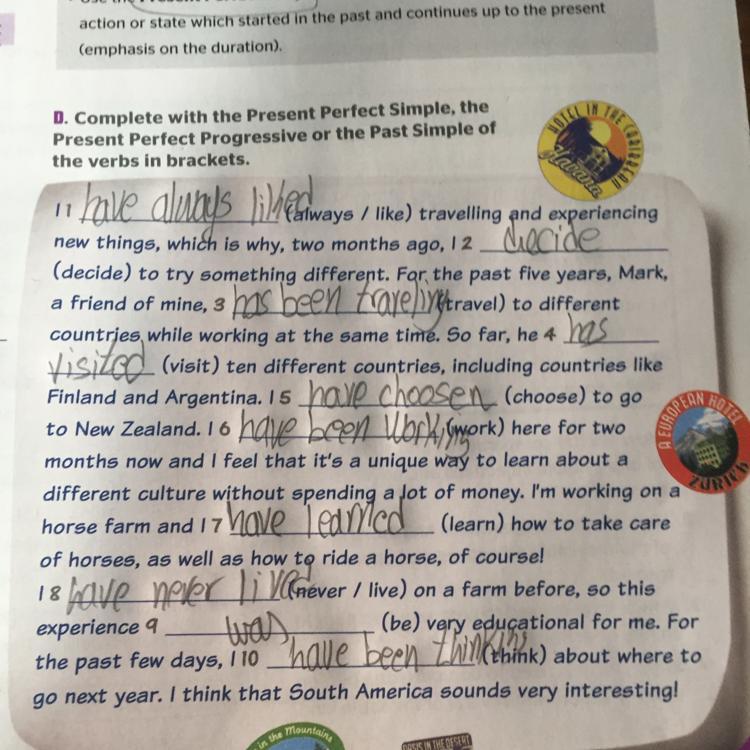 action or state which started in the past and continues up to the present
(emphasis on the duration).
D. Complete with the Present Perfect Simple, the
Present Perfect Progressive or the Past Simple of
the verbs in brackets.
HOTEL IN THE CARIBBEAN
Havana
I 1 have always liked (always / like) travelling and experiencing
new things, which is why, two months ago, I 2 decide
(decide) to try something different. For the past five years, Mark,
a friend of mine, 3 has been traveling (travel) to different
countries while working at the same time. So far, he 4 has
visited (visit) ten different countries, including countries like
Finland and Argentina. I 5 have choosen (choose) to go
to New Zealand. I 6 have been working (work) here for two
months now and I feel that it's a unique way to learn about a
different culture without spending a lot of money. I'm working on a
horse farm and I 7 have learned (learn) how to take care
of horses, as well as how to ride a horse, of course!
I 8 have never lived (never / live) on a farm before, so this
experience 9 was (be) very educational for me. For
the past few days, I 10 have been thinking (think) about where to
go next year. I think that South America sounds very interesting!
A EUROPEAN HOTEL
ZURICH
in the Mountains
OASIS IN THE DESERT